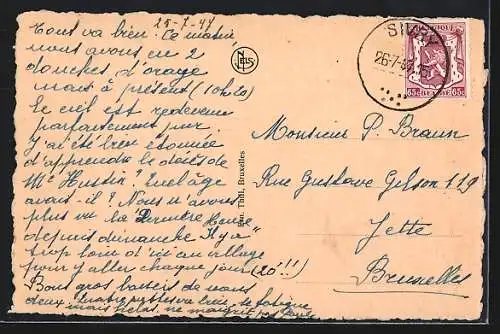 25-7-47
Tout va bien. Ce matin
nous avons eu 2
douches d'orage
mais à présent (10h20)
le ciel est redevenu
parfaitement pur
J'ai été bien étonnée
d'apprendre le décès de
Mr Hustin! Quel âge
avait-il? Nous n'avons
plus vu la "Dernière Heure"
depuis dimanche Il y a
trop loin d'ici au village
pour y aller chaque jour (20'!!)
Bons gros baisers de nous
deux.
mais
NELS
Thill, Bruxelles
SIVRY
26-7
BELGIQUE
65c BELGIE 65c
Monsieur P. Braun
Rue Gustave Gilson 119
Jette
Bruxelles